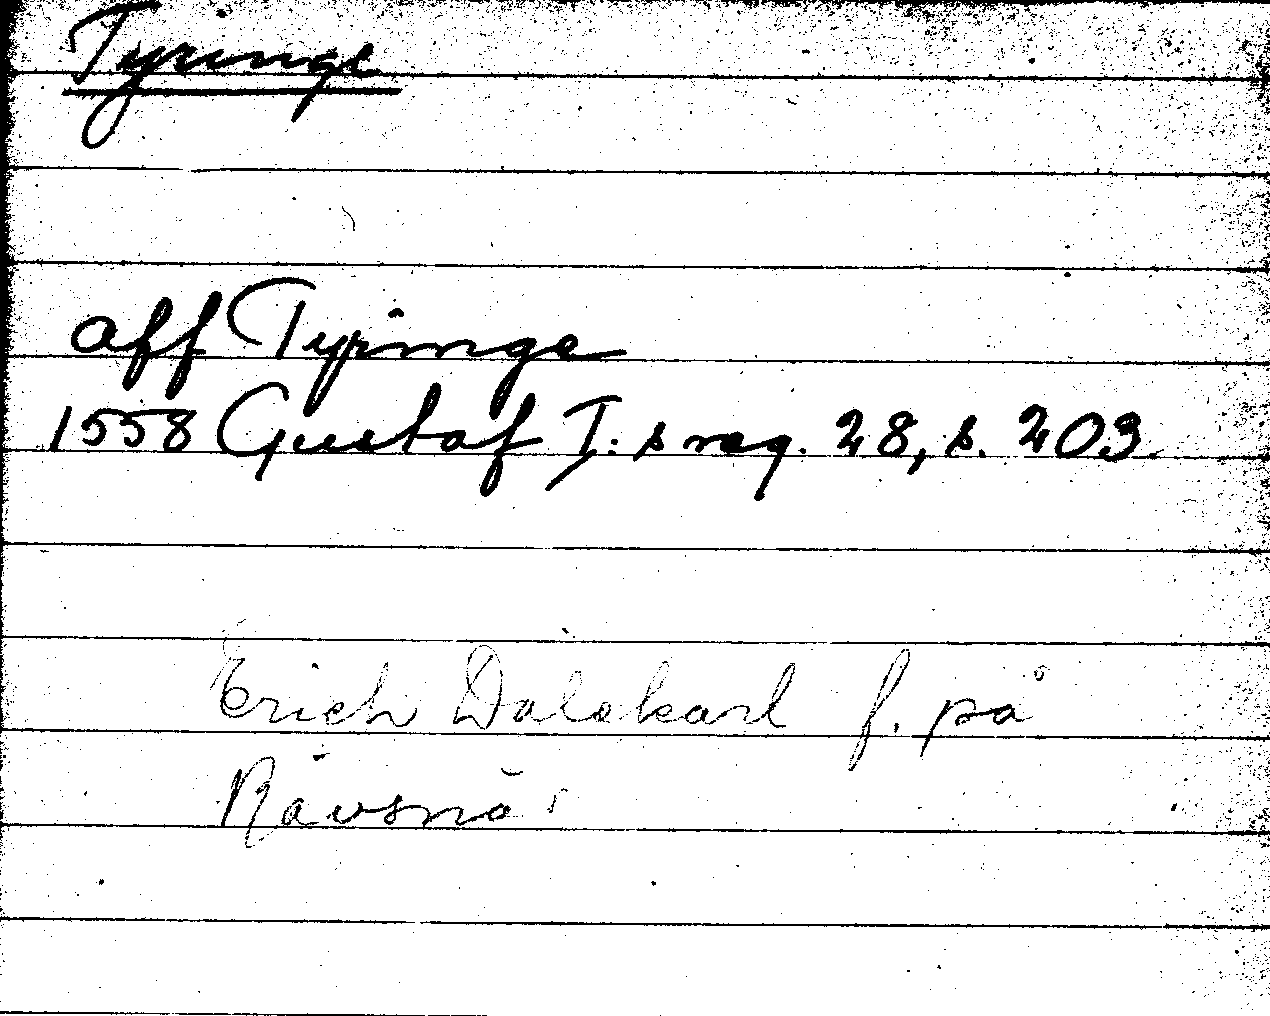 Tyringe
aff Tyringe
1558 Gustaf I:s reg. 28, s. 203
Erich Dalekarl f. på
Rävsnäs